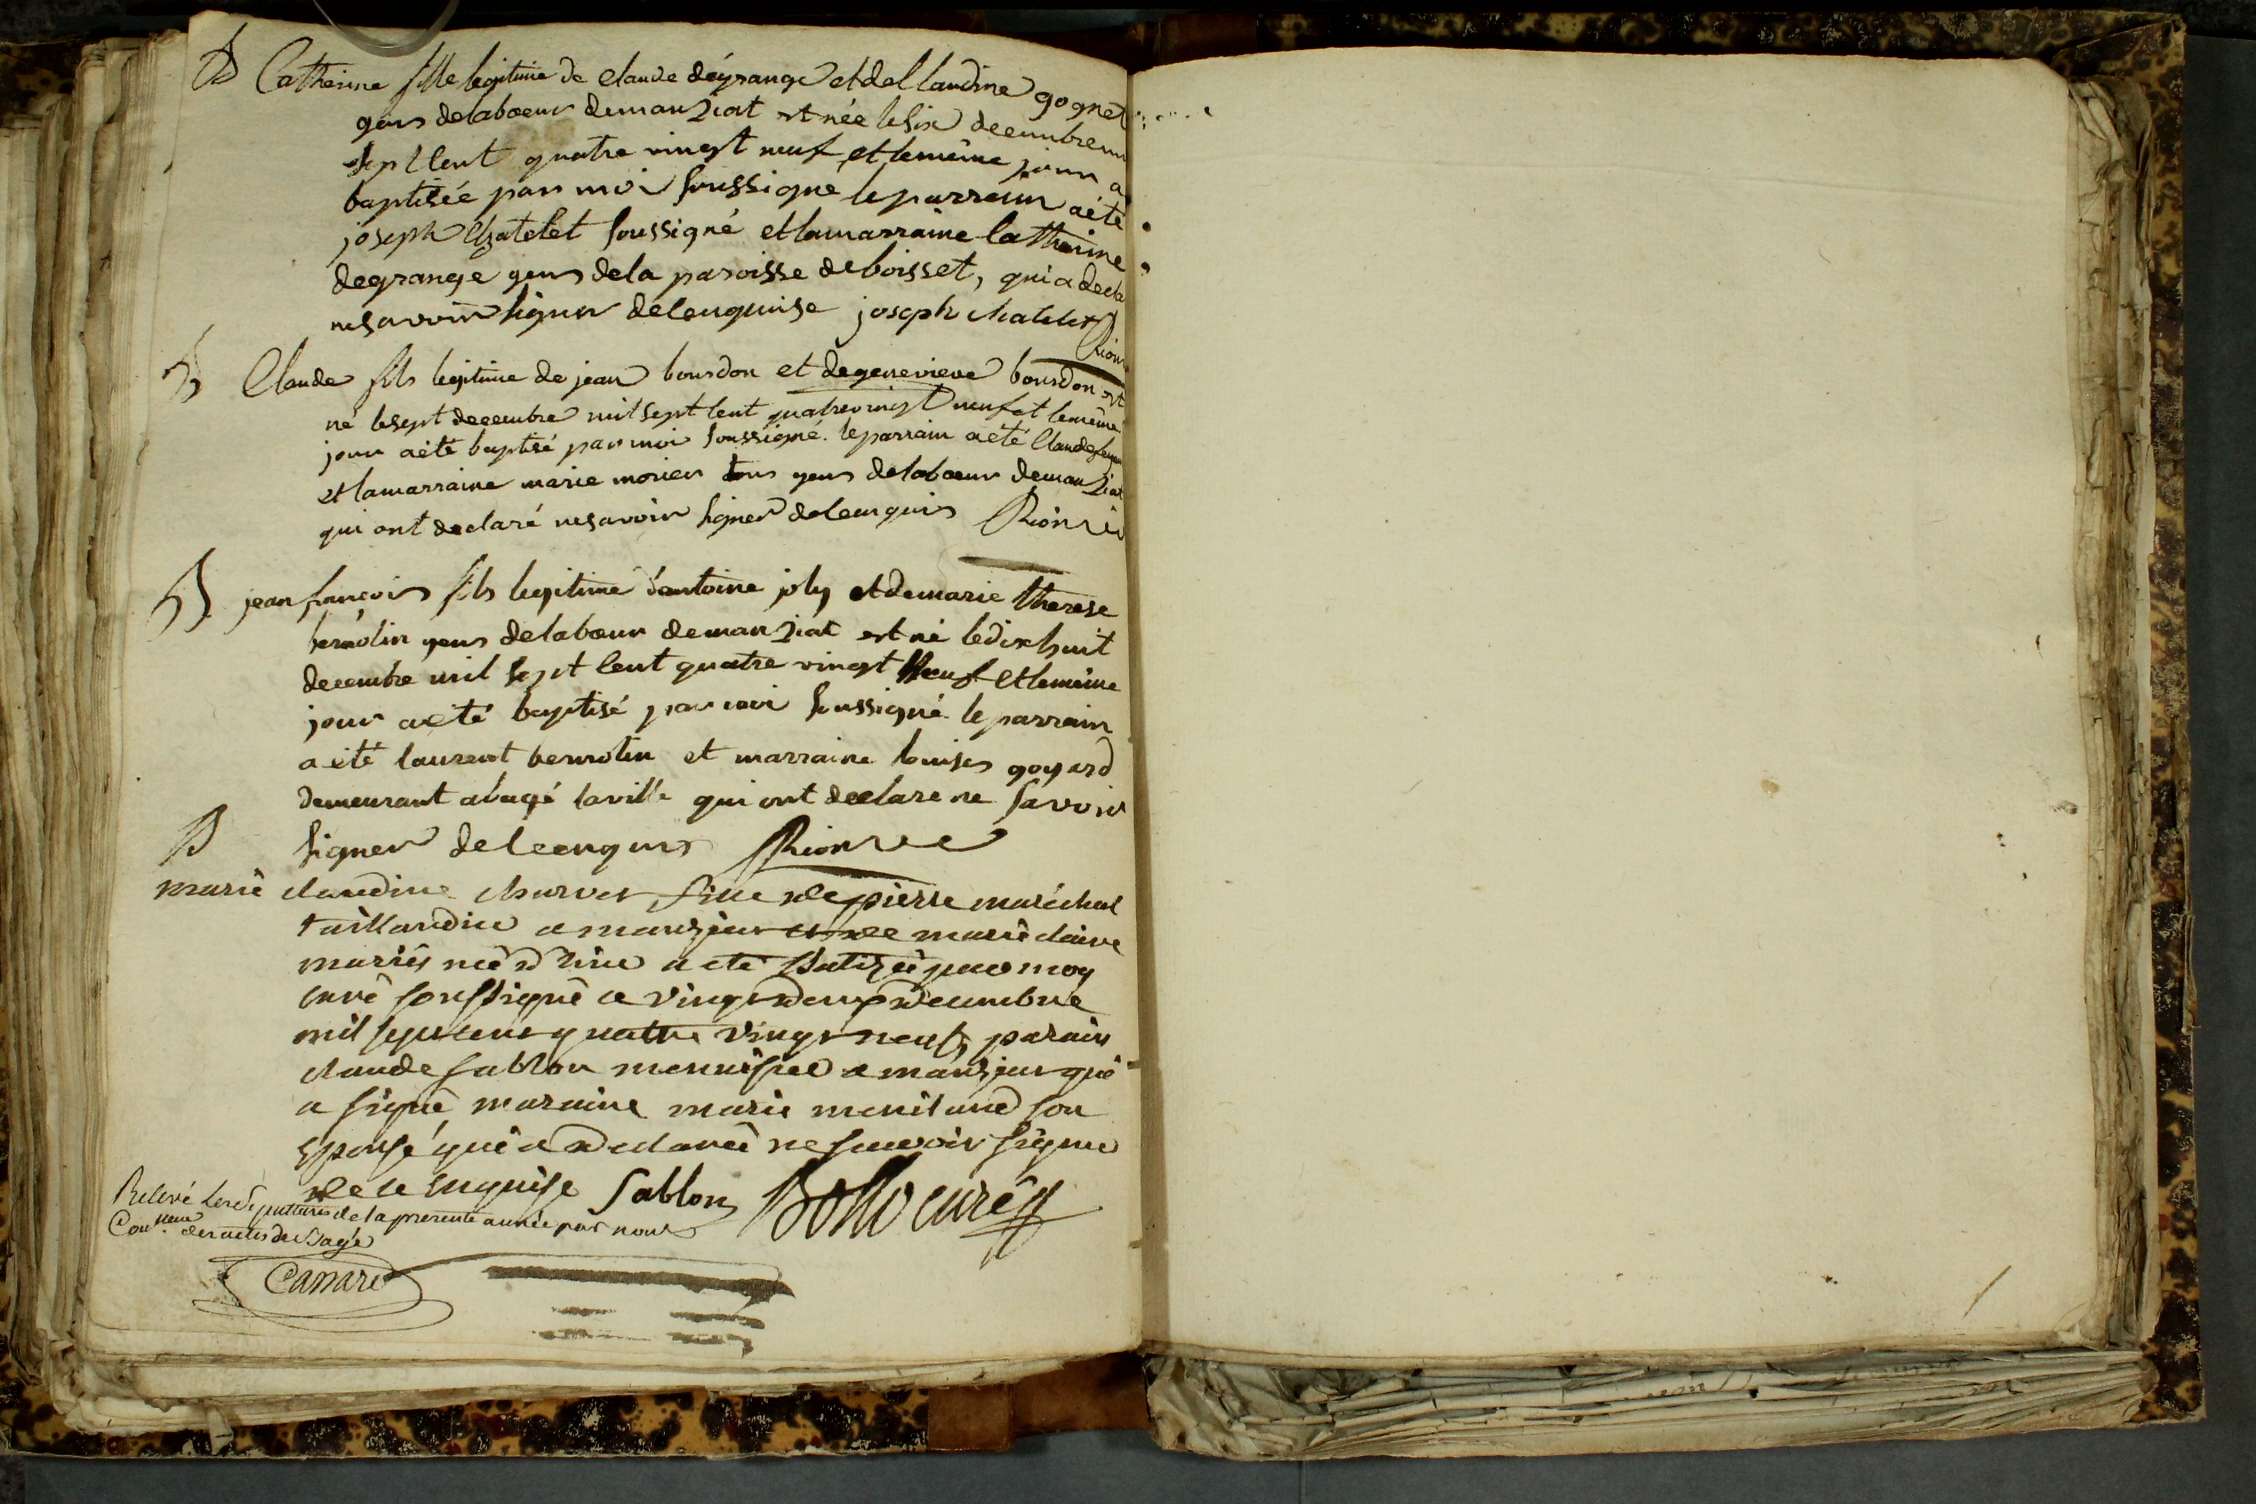 B Catherine fille legitime de claude dégrange et de Claudine gognet
gens de laboeur de manziat est née le six decembre mil
sept Cent quatre vingt neuf et le même jour a
baptisée par moi soussigné le parrain a été
joseph Chatelet soussigné et la marraine Catherine
degrange gens de la paroisse de boisset, qui a declaré
ne savoir signer de ce enquise joseph chatelet
B Claude fils legitime de jean bourdon et de genevieve bourdon est
né le sept decembre mil sept Cent quatre vingt neuf et le même
jour a été baptisé par moi soussigné. le parrain a été Claude
et la marraine marie morier tous gens de laboeur de manziat
qui ont declaré ne savoir signer de ce enquis
B jean françois fils legitime d'antoine joly et de marie therese
gens de laboeur de manziat est né le dix huit
decembre mil sept Cent quatre vingt Neuf et le même
jour a été baptisé par moi soussigné le parrain
a été laurent et marraine louise goyard
demeurant a bagé la ville qui ont declare ne savoir
signer de ce enquis
B
marie claudine charvet fille de pierre maréchal
taillandier a manziat et de marie claire
mariés née d'hier a eté Batizée par moy
curé soussigné ce vingt deux decembre
mil sept cent quatre vingt neuf, parain
claude sablon menuisier a manziat qui
a signé maraine marie son
Epouse qui a declaree ne scavoir signer
de ce enquise Sablon curé
Relevé les Sepultures de la presente année par nous
Con.eur des actes de Bagé